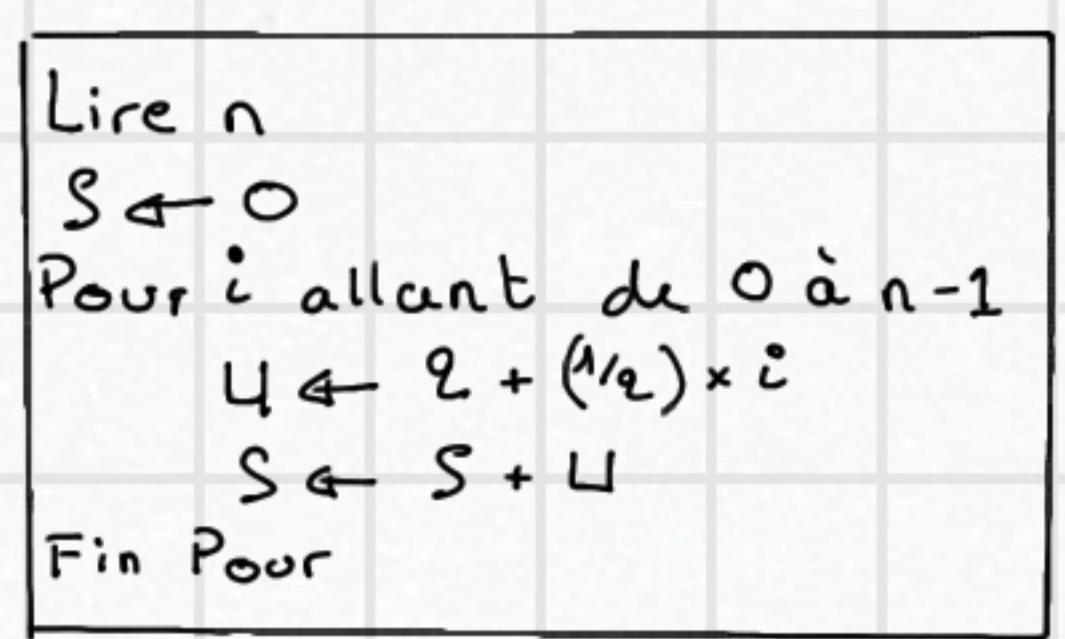 Lire n
S ← 0
Pour i allant de 0 à n-1
U ← 2 + (1/2) × i
S ← S + U
Fin Pour